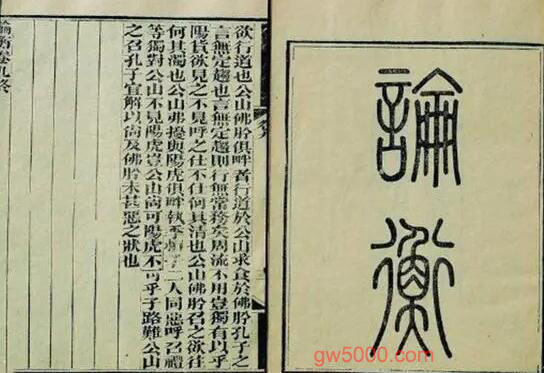 論
衡
欲行道也公山佛肸俱畔者行道於公山求食於佛肸孔子之
言無定趨也言無定趨則行無常務矣周流不用豈獨有以乎
陽貨欲見之不見呼之仕不仕何其清也公山佛肸召之欲往
何其濁也公山弗擾與陽虎俱畔執季二人同惡呼召禮
等獨對公山不見陽虎豈公山尚可陽虎不可乎子路難公山
之召孔子宜解以尚及佛肸未甚惡之狀也
論衡卷九終
gw5000.com